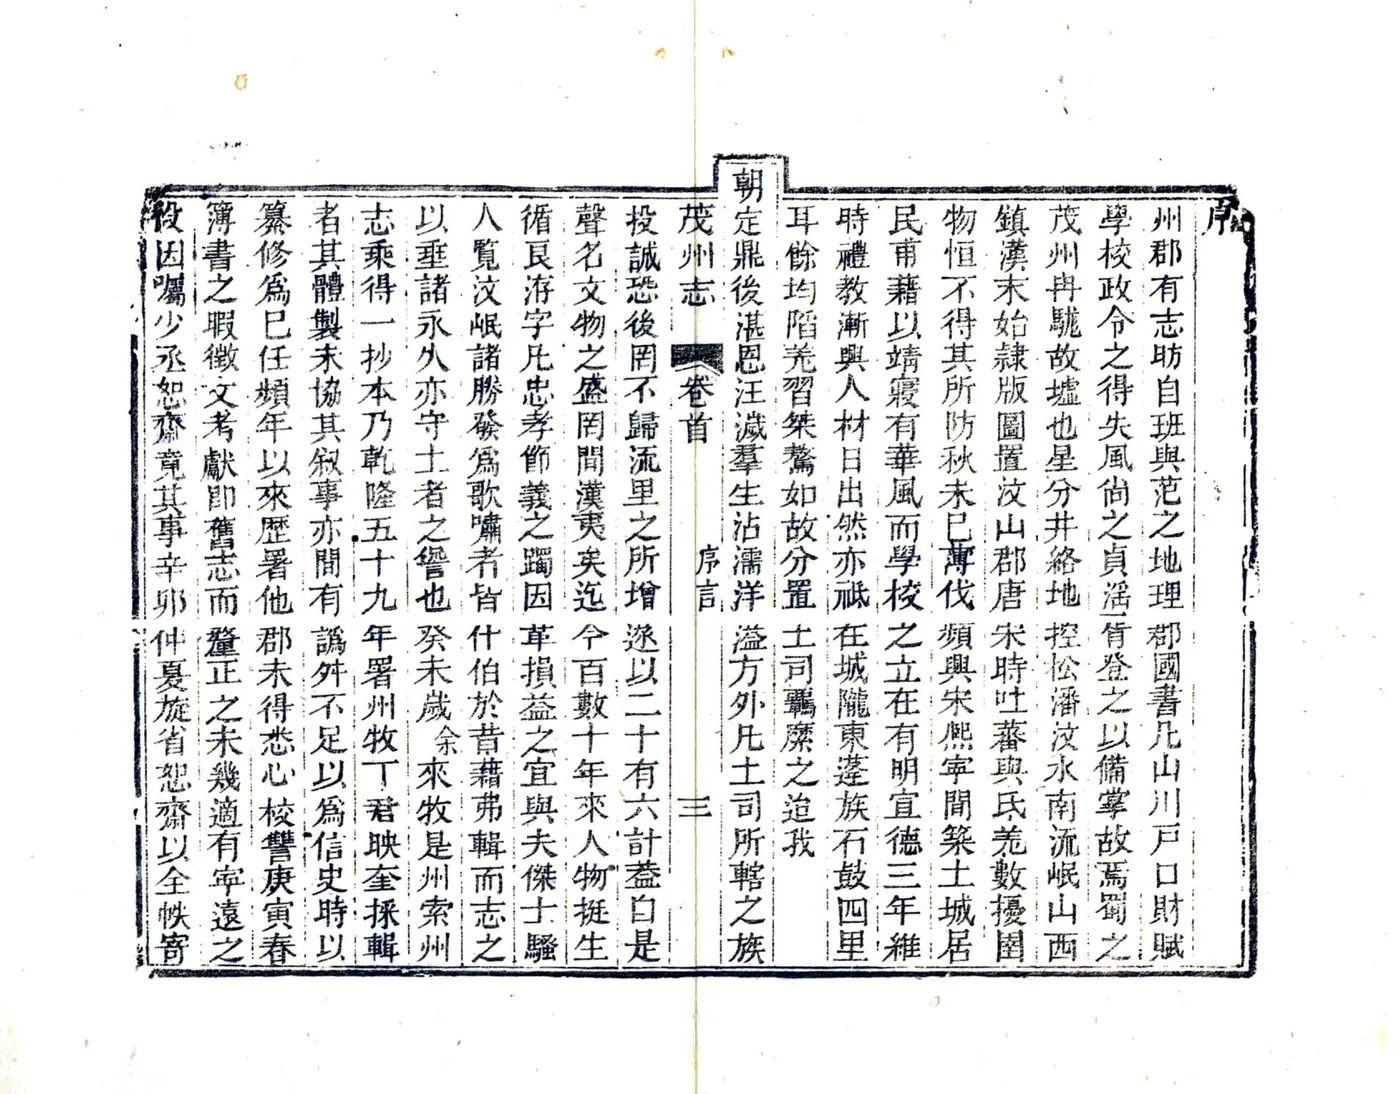 序
州郡有志昉自班與范之地理郡國書凡山川戸口財賦
學校政令之得失風尚之貞淫一胥登之以備掌故焉蜀之
茂州冉駹故墟也星分井絡地控松潘汶水南流岷山西
鎮漢末始隷版圖置汶山郡唐宋時吐蕃與氐羌數擾圉
物恒不得其所防秋未已薄伐頻興宋熈寧間築土城居
民甫藉以靖寢有華風而學校之立在有明宣德三年維
時禮教漸興人材日出然亦祗在城隴東蓬族石鼓四里
耳餘均陷羌習桀驁如故分置土司羈縻之迨我
朝定鼎後湛恩汪濊羣生沾濡洋溢方外凡土司所轄之族
茂州志 卷首 序言 三
投誠恐後罔不歸流里之所增遂以二十有六計蓋自是
聲名文物之盛罔間漢夷矣迄今百數十年來人物挺生
循良洊字凡忠孝節義之躅因革損益之宜與夫傑士騷
人覽汶岷諸勝發爲歌嘯者皆什伯於昔藉弗輯而志之
以垂諸永久亦守土者之諐也癸未歲余來牧是州索州
志乘得一抄本乃乾隆五十九年署州牧丁君映奎採輯
者其體製未協其叙事亦間有譌舛不足以爲信史時以
纂修爲已任頻年以來歷署他郡未得悉心校讐庚寅春
簿書之暇徵文考獻即舊志而釐正之未幾適有寧遠之
役因囑少丞恕齋竟其事辛卯仲夏旋省恕齋以全帙寄